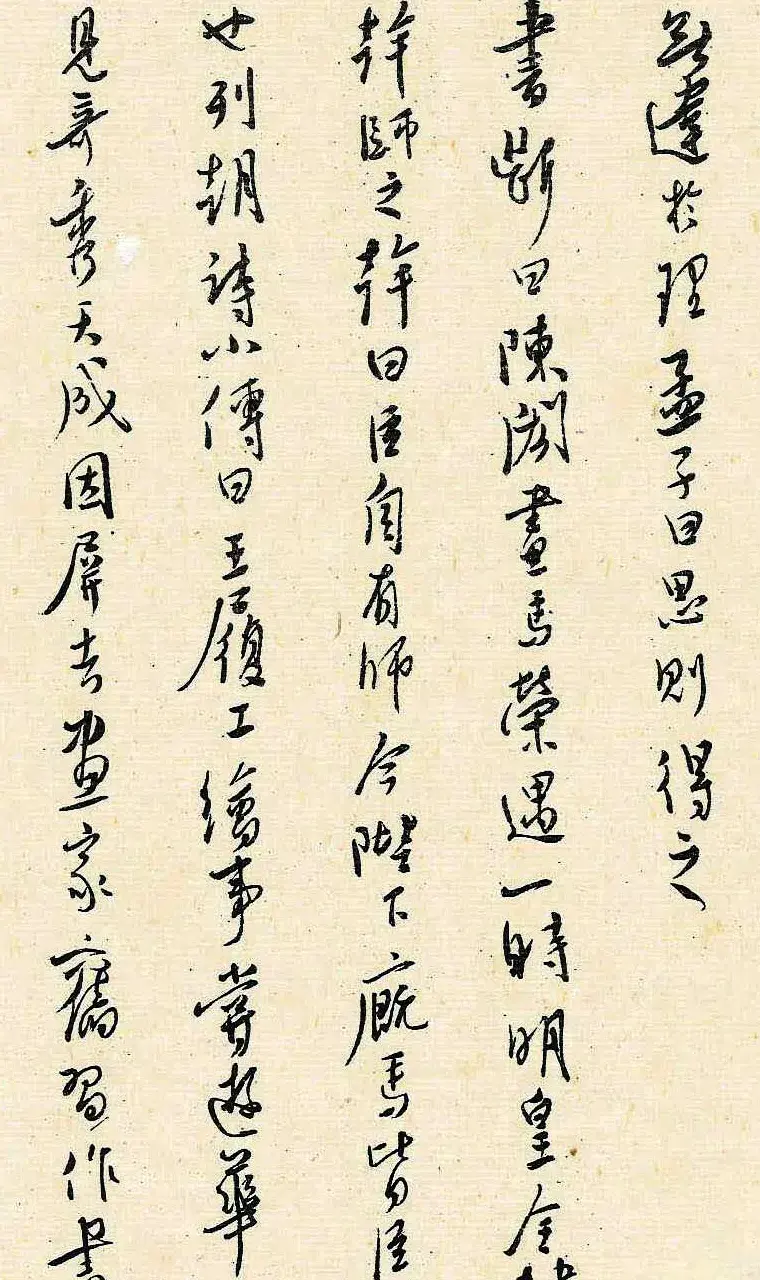 無違於理孟子曰思則得之
書斷曰陳閎畫馬榮遇一時明皇令韓
幹師之幹曰臣自有師今陛下廄馬皆臣
也列朝詩小傳曰王履工繪事嘗遊華
見奇秀天成因屏去畫家舊習作書